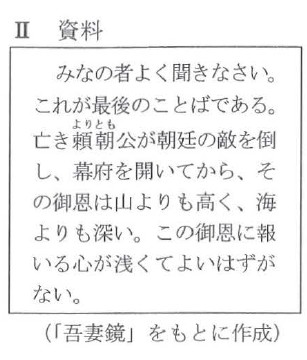 Ⅱ 資料
みなの者よく聞きなさい。
これが最後のことばである。
よりとも
亡き頼朝公が朝廷の敵を倒
し、幕府を開いてから、そ
の御恩は山よりも高く、海
よりも深い。この御恩に報
いる心が浅くてよいはずが
ない。
（「吾妻鏡」をもとに作成）